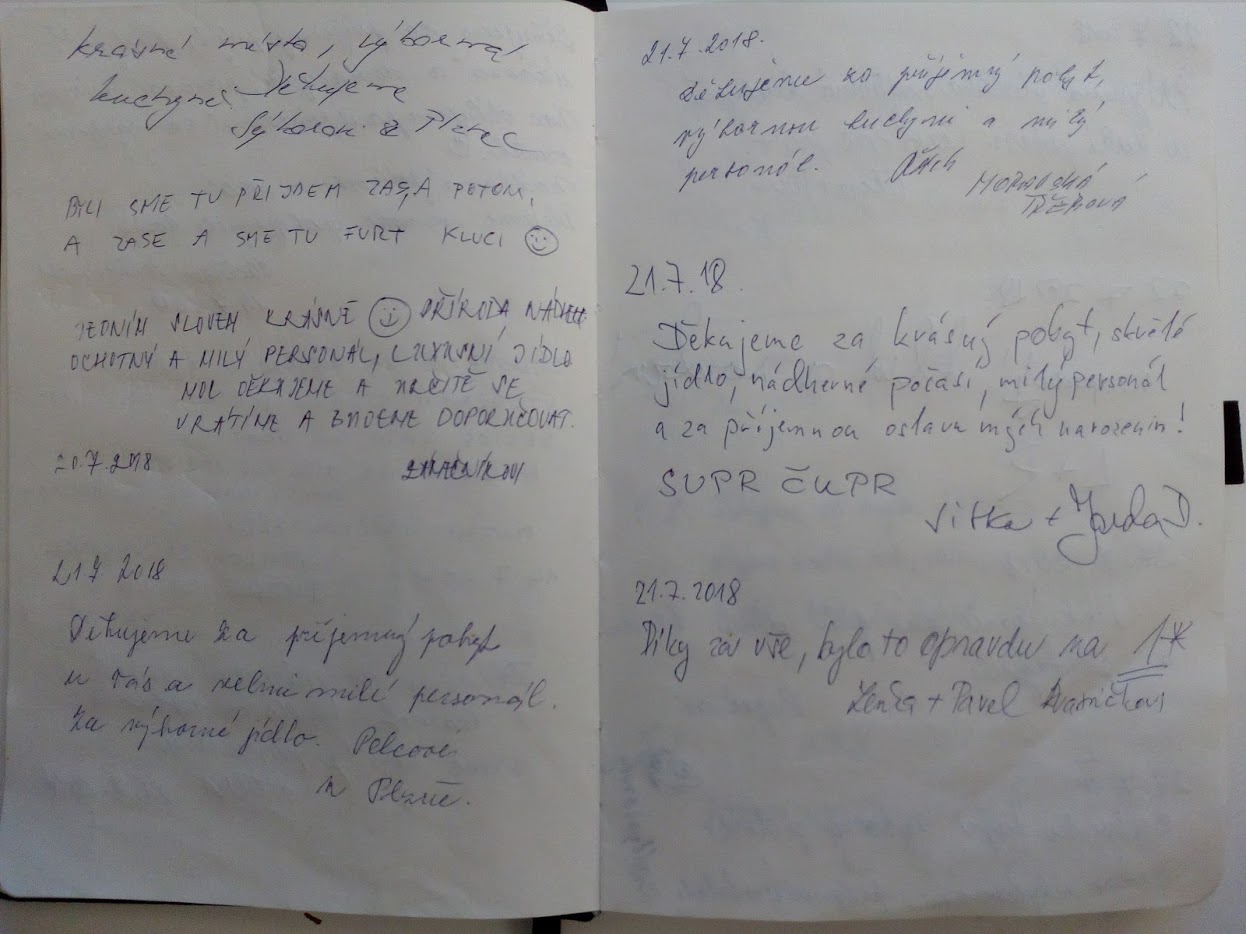 krásné místo, výborná
kuchyně Děkujeme
Sýkorovi z
BYLI SME TU PŘIJDEM ZASA POTOM,
A ZASE A SME TU FURT KLUCI
JEDNÍM SLOVEM KRÁSNÉ PŘÍRODA
OCHOTNÝ A MILÝ PERSONÁL, LUXUSNÍ JÍDLO
MOC DĚKUJEME A URČITĚ SE
VRÁTÍME A BUDEME DOPORUČOVAT.
20.7.2018
21 7 2018
Děkujeme za příjemný pobyt
u Vás a velmi milé personál.
Za výborné jídlo. Pelcovi
z Plzně.
21.7.2018.
Děkujeme za příjemný pobyt,
výbornou kuchyni a milý
personál.
21.7.18.
Děkujeme za krásný pobyt, skvělé
jídlo, nádherné počasí, milý personál
a za příjemnou oslavu mých narozenin!
SUPR ČUPR
Vitka + Jarda D.
21.7.2018
Díky za vše, bylo to opravdu na 1*
Lenka + Pavel